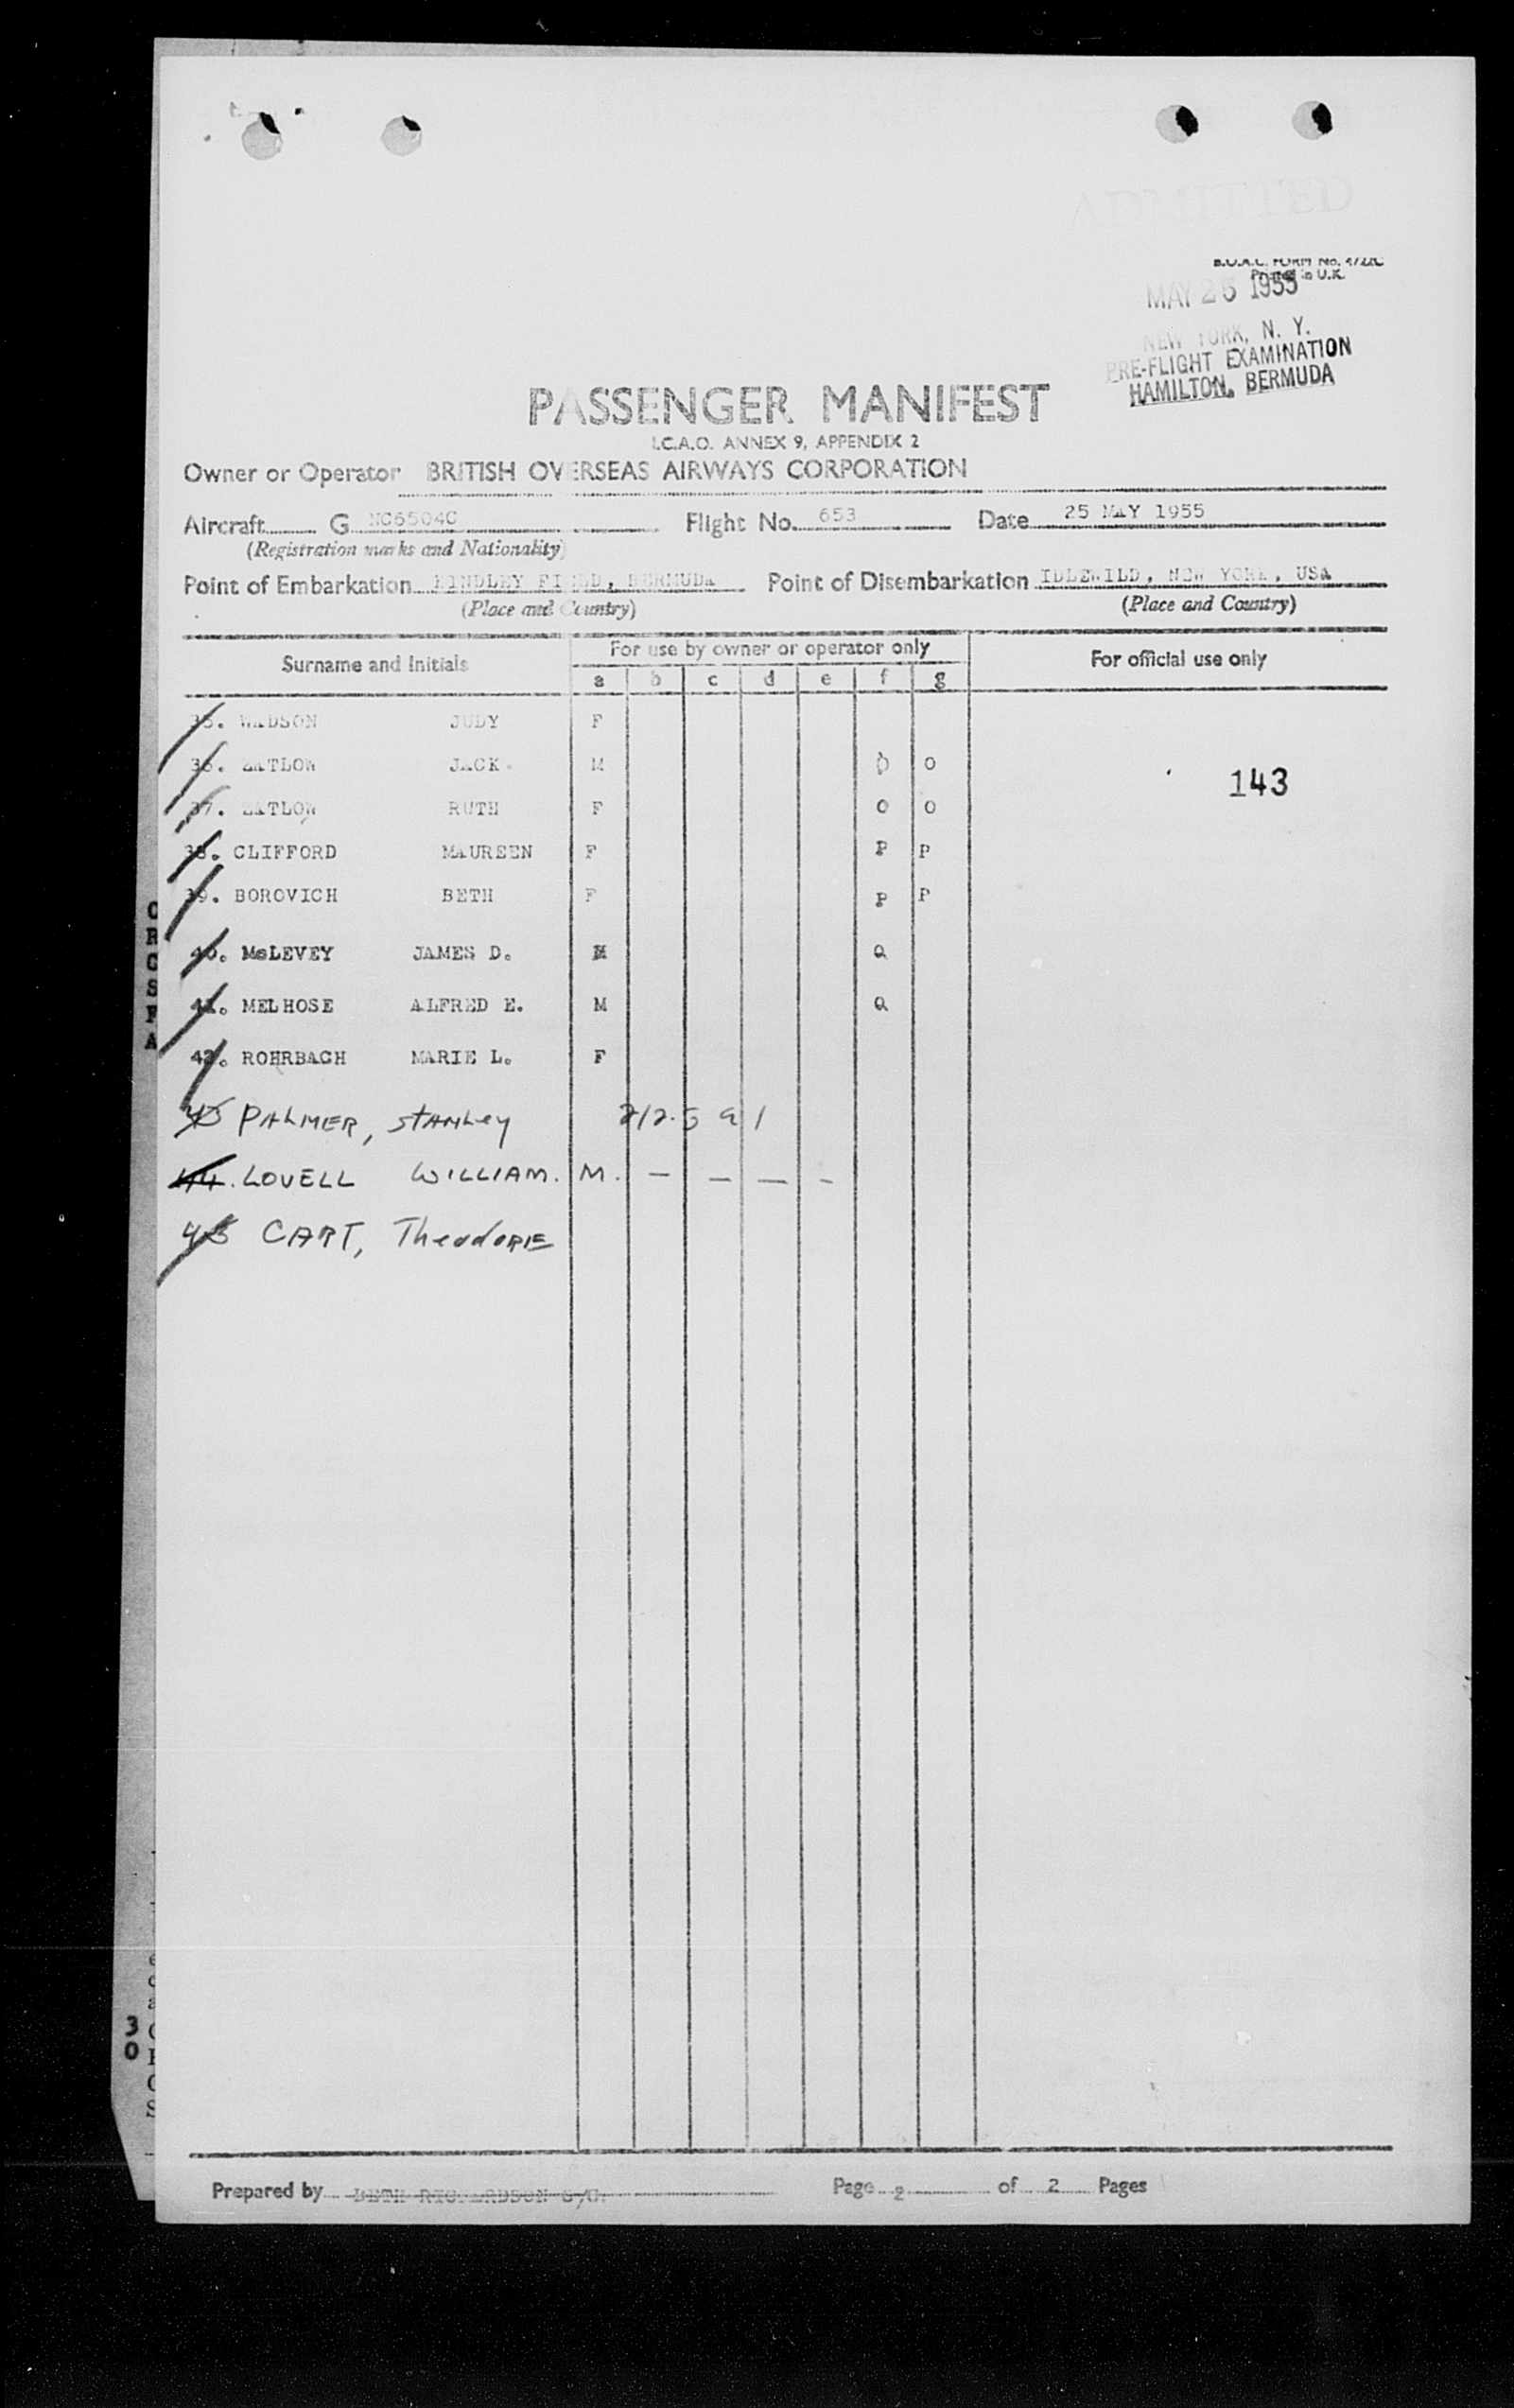 B.O.A.C. FORM No.
Printed in U.K.
MAY 25 1955
NEW YORK, N. Y.
PRE-FLIGHT EXAMINATION
HAMILTON, BERMUDA
PASSENGER MANIFEST
I.C.A.O. ANNEX 9, APPENDIX 2
Owner or Operator BRITISH OVERSEAS AIRWAYS CORPORATION
Aircraft G NC6504C Flight No. 653 Date 25 MAY 1955
(Registration marks and Nationality)
Point of Embarkation KINDLEY FIELD, BERMUDA Point of Disembarkation IDLEWILD, NEW YORK, USA
(Place and Country) (Place and Country)
Surname and Initials For use by owner or operator only For official use only
a b c d e f g
35. WADSON JUDY F
36. ZATLOW JACK. M O O
143
37. ZATLOW RUTH F O O
38. CLIFFORD MAUREEN F P P
39. BOROVICH BETH F P P
40. McLEVEY JAMES D. M a
41. MELHOSE ALFRED E. M a
42. ROHRBACH MARIE L. F
43 PALMER, STANLEY 212.591
44. LOVELL WILLIAM. M. — — — -
45 CART, TheodoRE
Prepared by BETH RICHARDSON Page 2 of 2 Pages
C
R
C
S
F
A
3
0